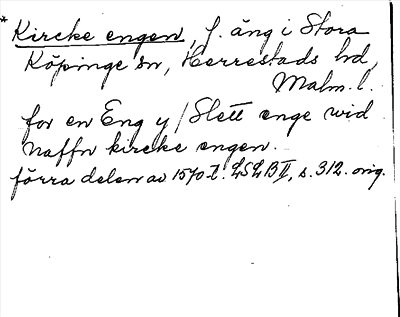 * Kircke engen, f. äng i Stora
Köpinge sn, Herrestads hd,
Malm. l.
for en Eng y / Slett enge wid
Naffn kircke engen.
förra delen av 1570-t. LSLB II, s. 312. orig.